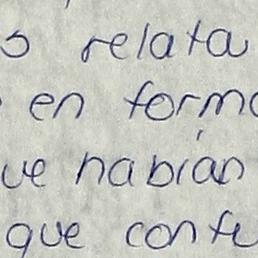 relata
en form
habían
que conf